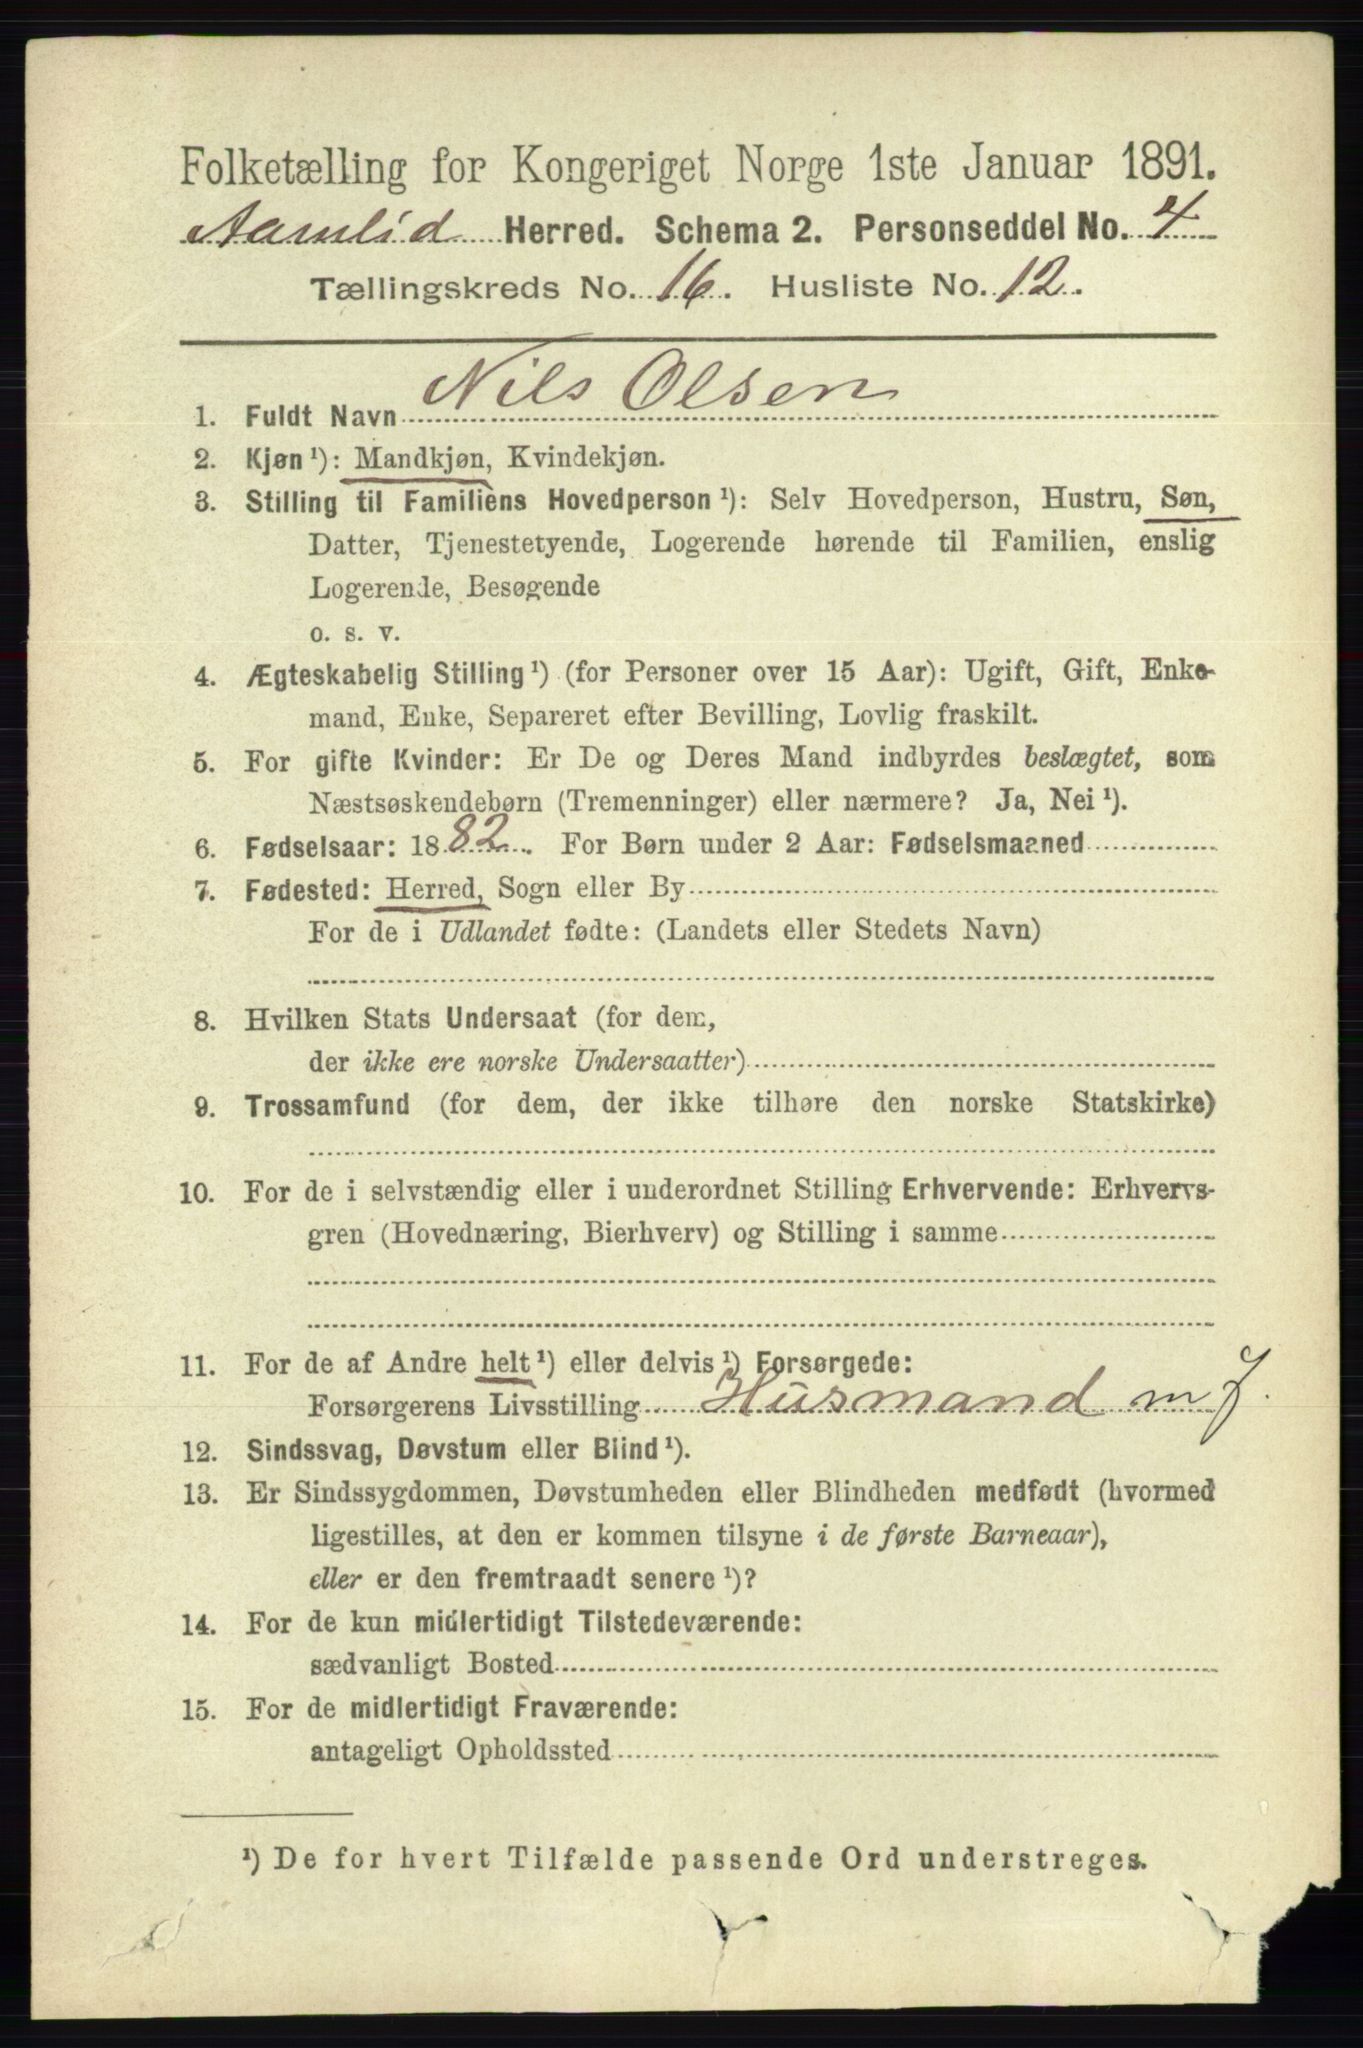 Folketælling for Kongeriget Norge 1ste Januar 1891.
Aamlid Herred. Schema 2. Personseddel No. 4
Tællingskreds No. 16. Husliste No. 12.
1. Fuldt Navn Nils Olsen
2. Kjøn ¹): Mandkjøn, Kvindekjøn.
3. Stilling til Familiens Hovedperson ¹): Selv Hovedperson, Hustru, Søn,
Datter, Tjenestetyende, Logerende hørende til Familien, enslig
Logerende, Besøgende
o. s. v.
4. Ægteskabelig Stilling ¹) (for Personer over 15 Aar): Ugift, Gift, Enke-
mand, Enke, Separeret efter Bevilling, Lovlig fraskilt.
5. For gifte Kvinder: Er De og Deres Mand indbyrdes beslægtet, som
Næstsøskendebørn (Tremenninger) eller nærmere? Ja, Nei ¹).
6. Fødselsaar: 1882. For Børn under 2 Aar: Fødselsmaaned
7. Fødested: Herred, Sogn eller By
For de i Udlandet fødte: (Landets eller Stedets Navn)
8. Hvilken Stats Undersaat (for dem,
der ikke ere norske Undersaatter)
9. Trossamfund (for dem, der ikke tilhøre den norske Statskirke)
10. For de i selvstændig eller i underordnet Stilling Erhvervende: Erhvervs-
gren (Hovednæring, Bierhverv) og Stilling i samme
11. For de af Andre helt ¹) eller delvis ¹) Forsørgede:
Forsørgerens Livsstilling Husmand m J.
12. Sindssvag, Døvstum eller Blind ¹).
13. Er Sindssygdommen, Døvstumheden eller Blindheden medfødt (hvormed
ligestilles, at den er kommen tilsyne i de første Barneaar),
eller er den fremtraadt senere ¹)?
14. For de kun midlertidigt Tilstedeværende:
sædvanligt Bosted
15. For de midlertidigt Fraværende:
antageligt Opholdssted
¹) De for hvert Tilfælde passende Ord understreges.